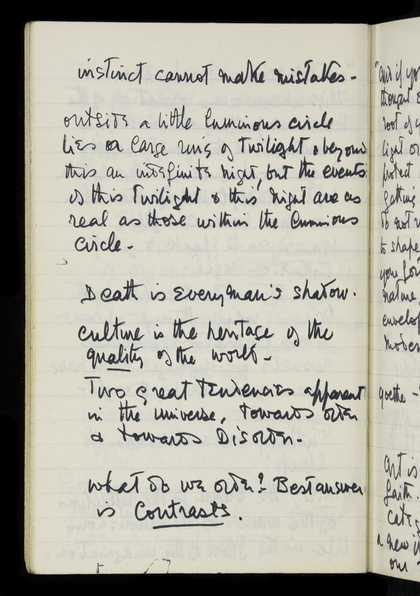 instinct cannot make mistakes -
outside a little luminous circle
lies a large ring of twilight & beyond
this an indefinite night, but the events
of this Twilight & this night are as
real as those within the luminous
circle -
Death is everyman's shadow.
culture is the heritage of the
quality of the world -
Two great tendencies apparent
in the universe, towards order
& towards Disorder -
what do we order? Best answer
is Contrasts.
"and if you
thought
root of
light or
getting
to shape
your
nature,
goethe -
Art is
faith
a new
our -